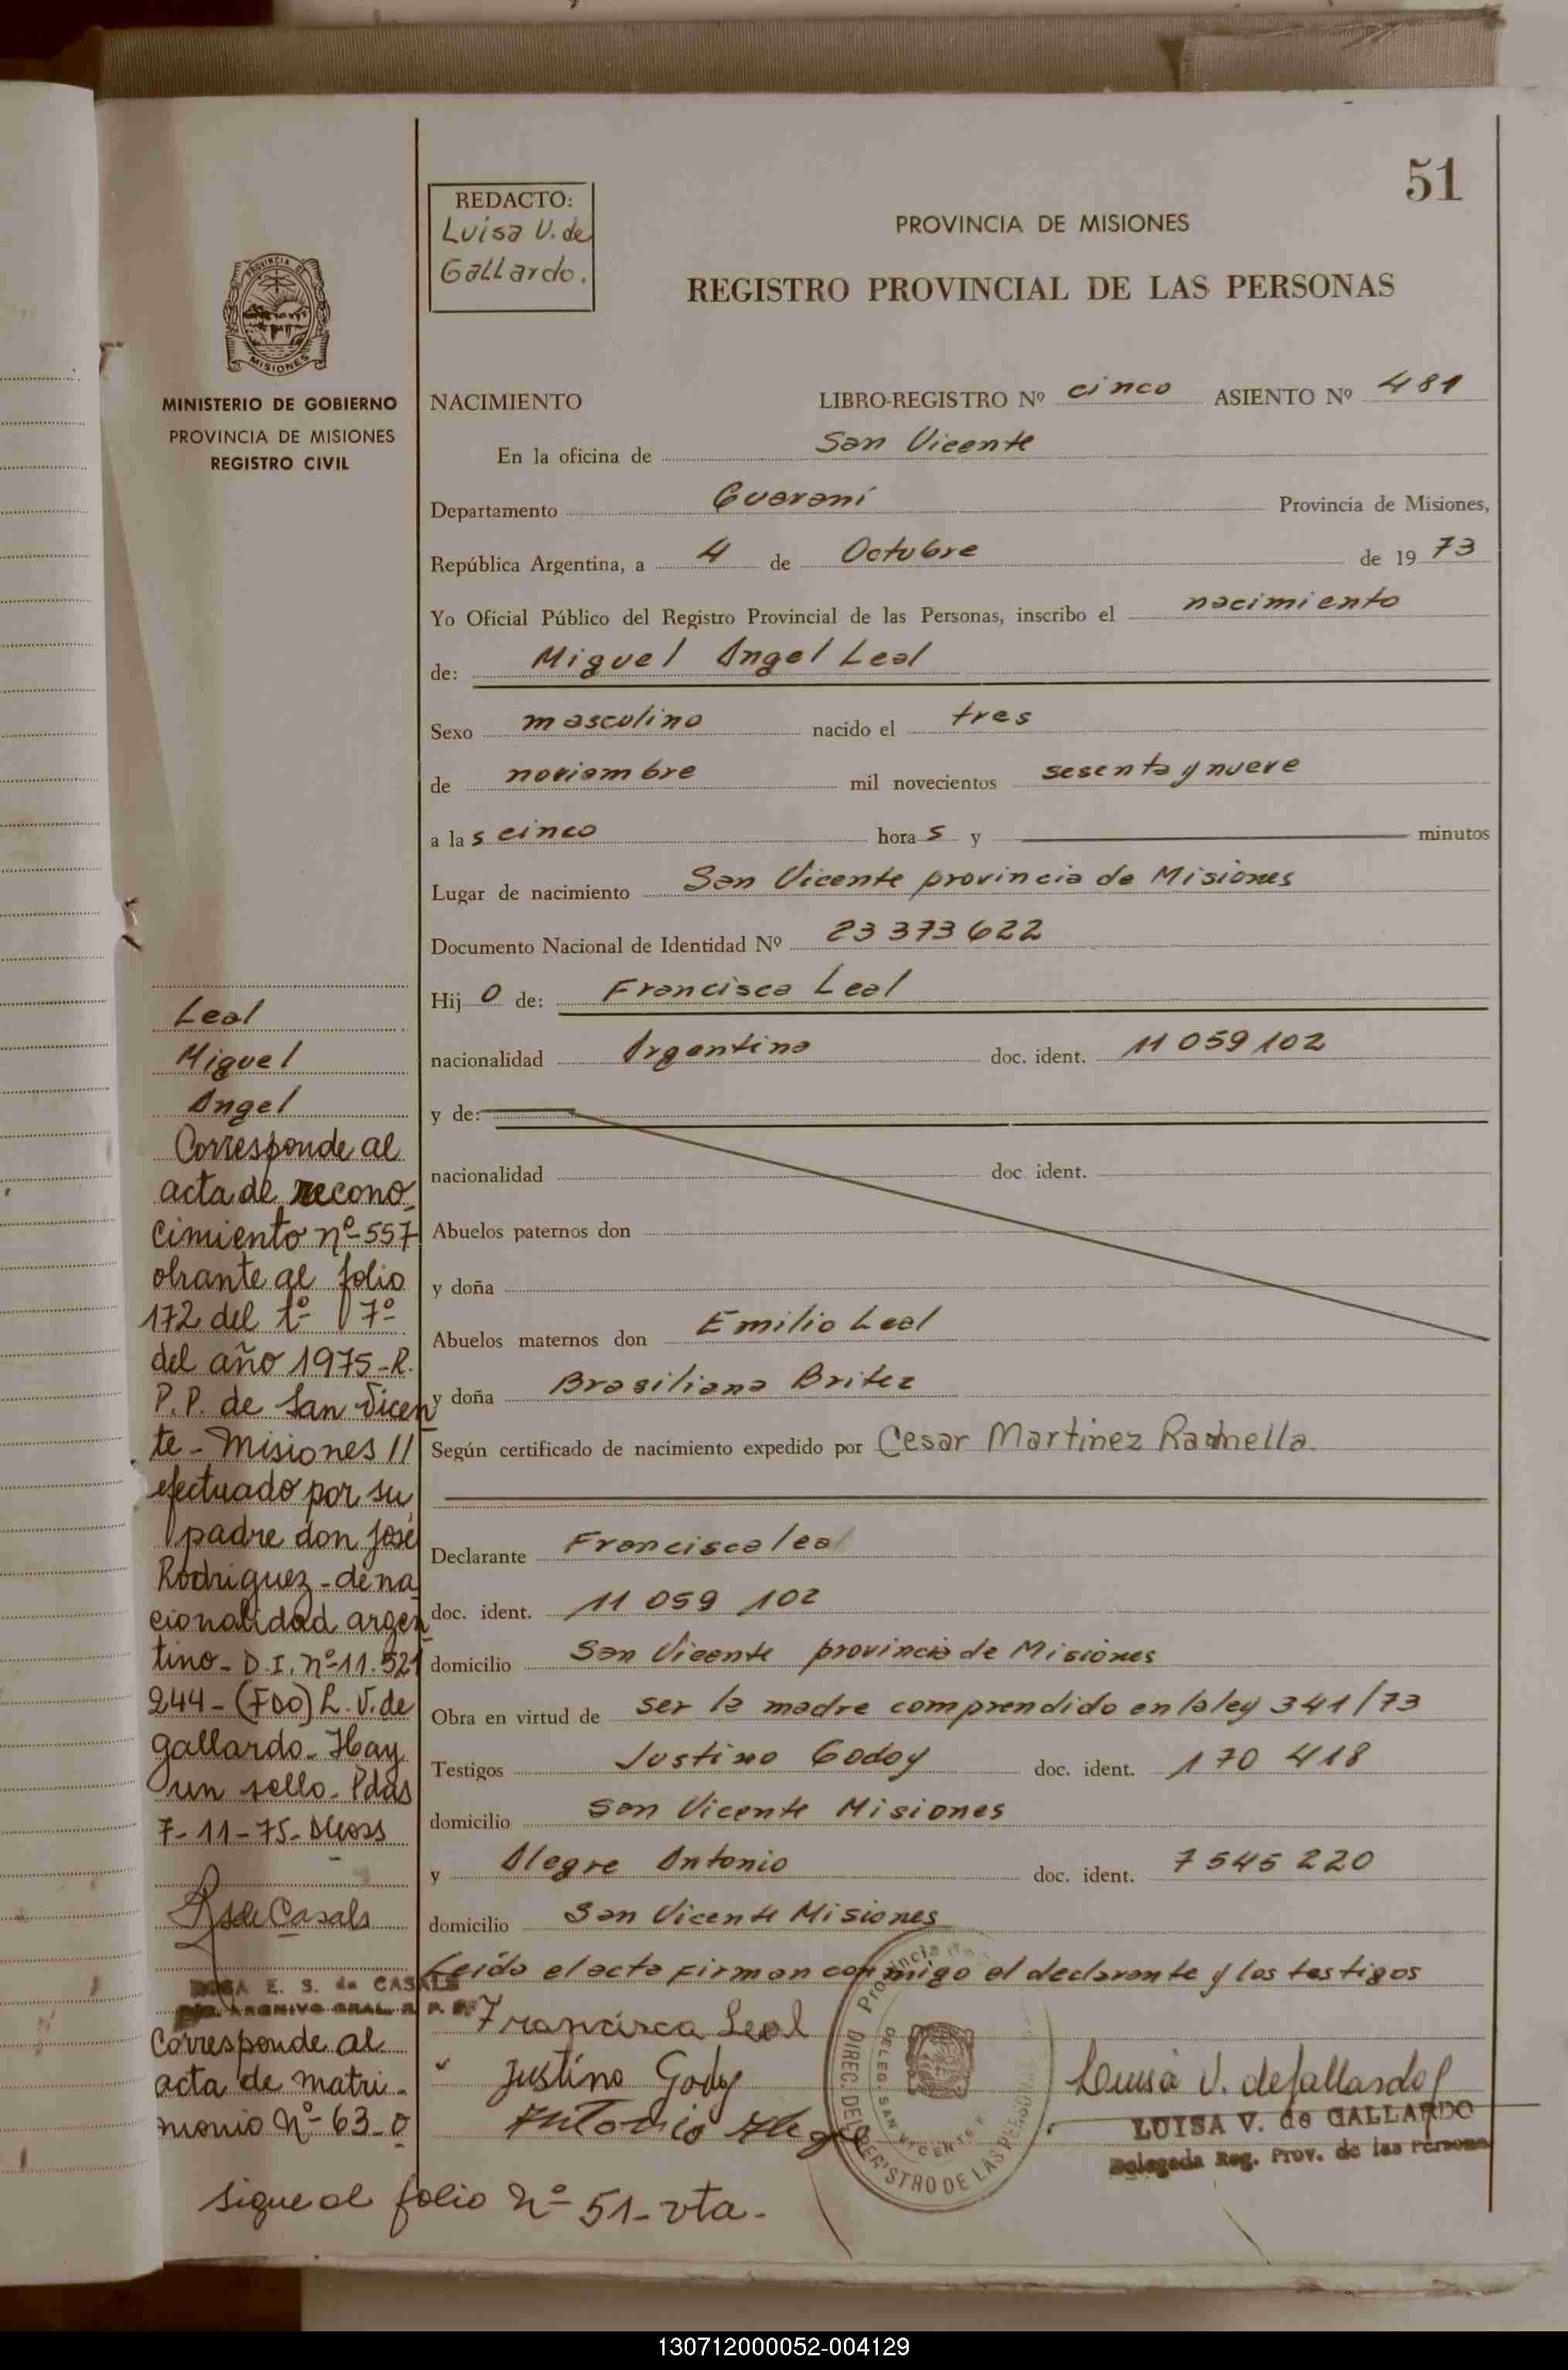 51
REDACTO:
Luisa V. de
Gallardo.
PROVINCIA DE MISIONES
REGISTRO PROVINCIAL DE LAS PERSONAS
PROVINCIA DE
MISIONES
MINISTERIO DE GOBIERNO
PROVINCIA DE MISIONES
REGISTRO CIVIL
NACIMIENTO LIBRO-REGISTRO Nº cinco ASIENTO Nº 481
En la oficina de San Vicente
Departamento Guaraní Provincia de Misiones,
República Argentina, a 4 de Octubre de 1973
Yo Oficial Público del Registro Provincial de las Personas, inscribo el nacimiento
de: Miguel Angel Leal
Sexo masculino nacido el tres
de noviambre mil novecientos sesenta y nueve
a las cinco horas y minutos
Lugar de nacimiento San Vicente provincia de Misiones
Documento Nacional de Identidad Nº 23 373 622
Hijo de: Francisca Leal
nacionalidad Argentina doc. ident. 11 059 102
y de:
nacionalidad doc. ident.
Abuelos paternos don
y doña
Abuelos maternos don Emilio Leal
y doña Brasiliana Britez
Según certificado de nacimiento expedido por Cesar Martinez
Declarante Francisca leal
doc. ident. 11 059 102
domicilio San Vicente provincia de Misiones
Obra en virtud de ser la madre comprendido en la ley 341/73
Testigos Justino Godoy doc. ident. 170 418
domicilio San Vicente Misiones
y Alegre Antonio doc. ident. 7545220
domicilio San Vicente Misiones
Leída el acta firman conmigo el declarante y los testigos
Francisca Leal
" Justino Godoy
Antonio Alegre
Luisa V. de Gallardo
LUISA V. de GALLARDO
Delegada Reg. Prov. de las Persona
DIREC. DEL REGISTRO DE LAS PERSON
Provincia
DELEG. SAN VICENTE
Leal
Miguel
Angel
Corresponde al
acta de recono
cimiento nº 557
obrante al folio
172 del tº 7º
del año 1975-R.
P.P. de San Vicen
te - Misiones //
efectuado por su
padre don José
Rodriguez - de na
cionalidad argen
tino - D.I. nº 11.521
244 - (FDO) L. V. de
Gallardo - Hay
un sello - Pdas
7-11-75-
de Casals
ROSA E. S. de CASALS
ARCHIVO GRAL. R. P. P.
Corresponde al
acta de matri-
monio Nº 63-0
sigue al folio Nº 51-vta-
130712000052-004129